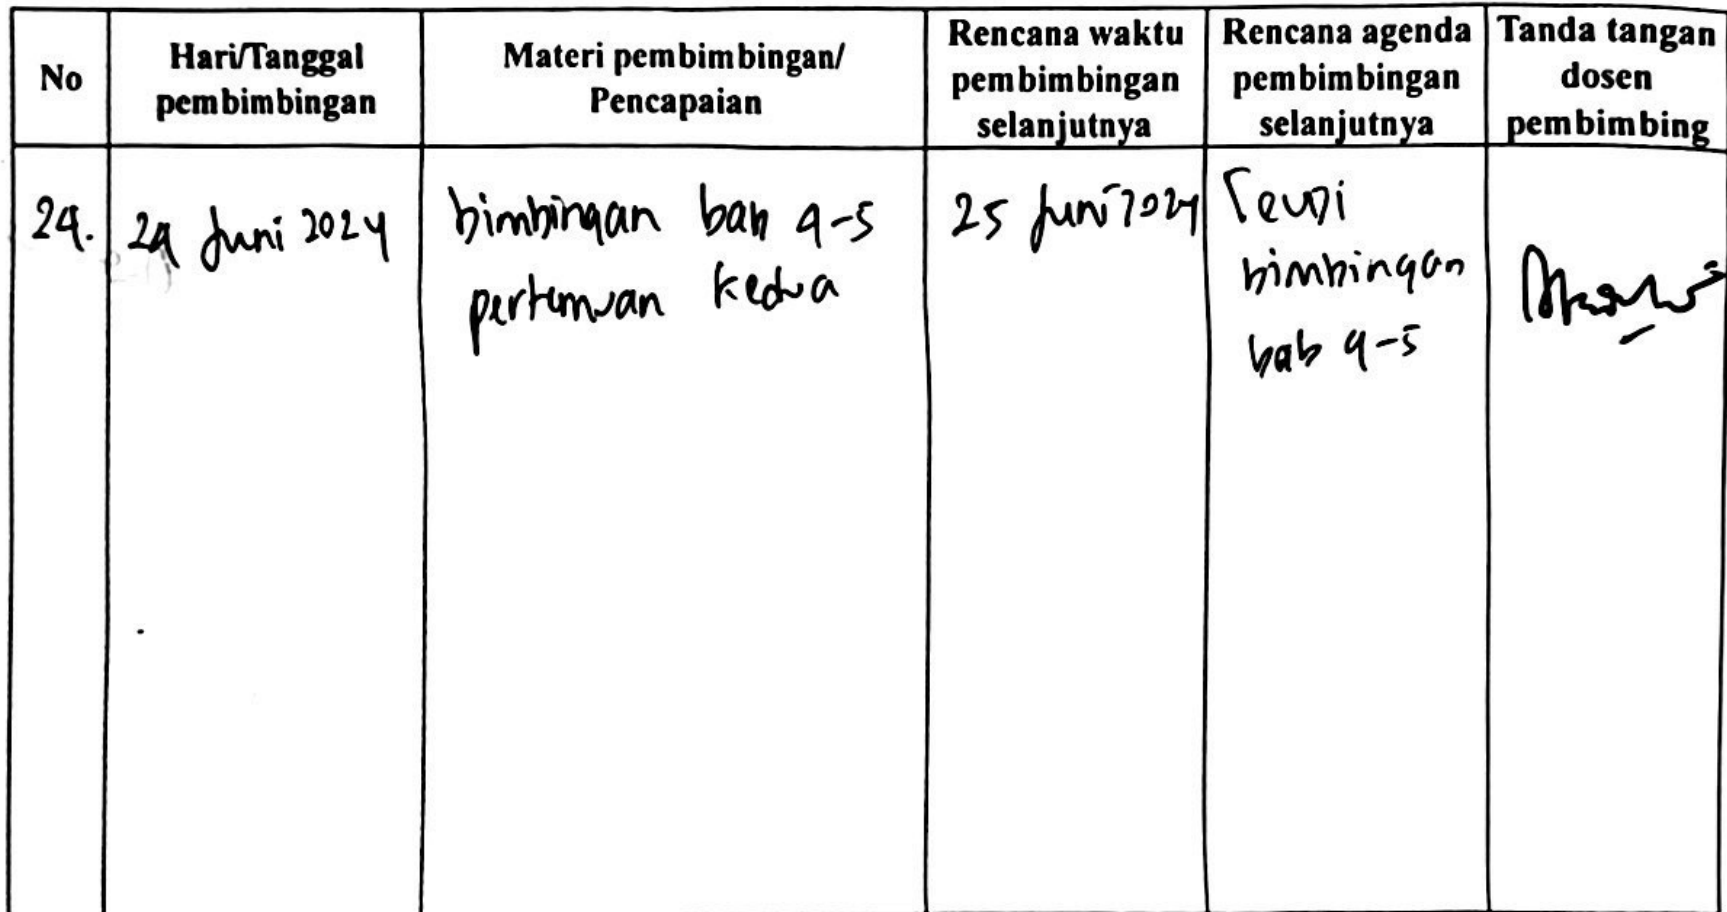 No
Hari/Tanggal
pembimbingan
Materi pembimbingan/
Pencapaian
Rencana waktu
pembimbingan
selanjutnya
Rencana agenda
pembimbingan
selanjutnya
Tanda tangan
dosen
pembimbing
24.
24 Juni 2024
bimbingan bab 4-5
pertemuan kedua
25 Juni 2024
bimbingan
bab 4-5